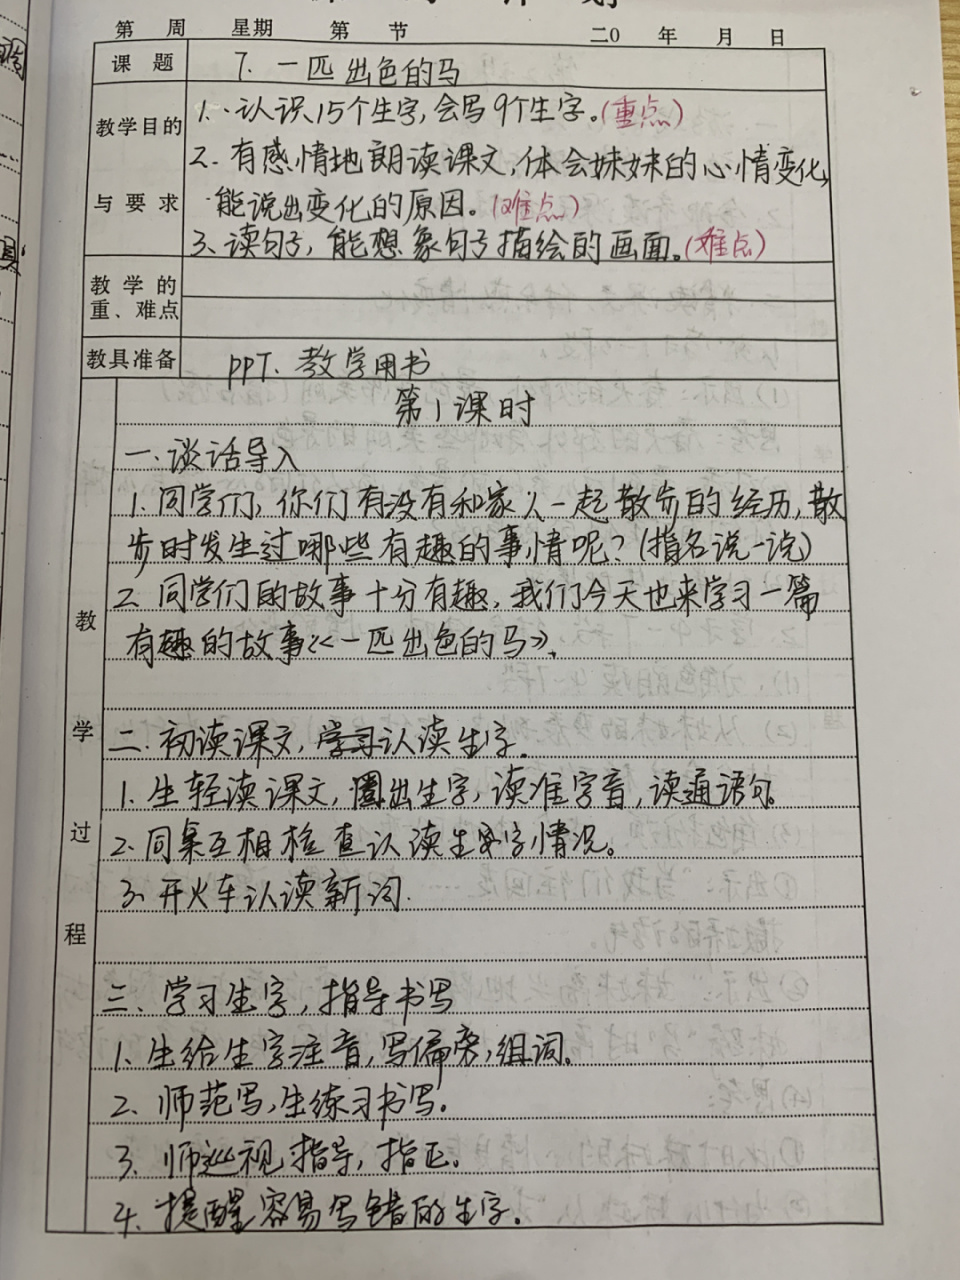 第 周 星期 第 节 二0 年 月 日
课 题 7. 一匹出色的马
教学目的与要求
1. 认识15个生字,会写9个生字。(重点)
2. 有感情地朗读课文,体会妹妹的心情变化,
能说出变化的原因。(难点)
3. 读句子,能想象句子描绘的画面。(难点)
教 学 的
重、难点
教具准备 PPT、教学用书
教学过程
第1课时
一.谈话导入
1. 同学们,你们有没有和家人一起散步的经历,散
步时发生过哪些有趣的事情呢?(指名说一说)
2. 同学们的故事十分有趣,我们今天也来学习一篇
有趣的故事《一匹出色的马》。
二.初读课文,学习认读生字.
1. 生轻读课文,圈出生字,读准字音,读通语句。
2. 同桌互相检查认读生字情况。
3. 开火车认读新词.
三、学习生字,指导书写
1. 生给生字注音,写偏旁,组词。
2. 师范写,生练习书写。
3. 师巡视指导,指正。
4. 提醒容易写错的生字。